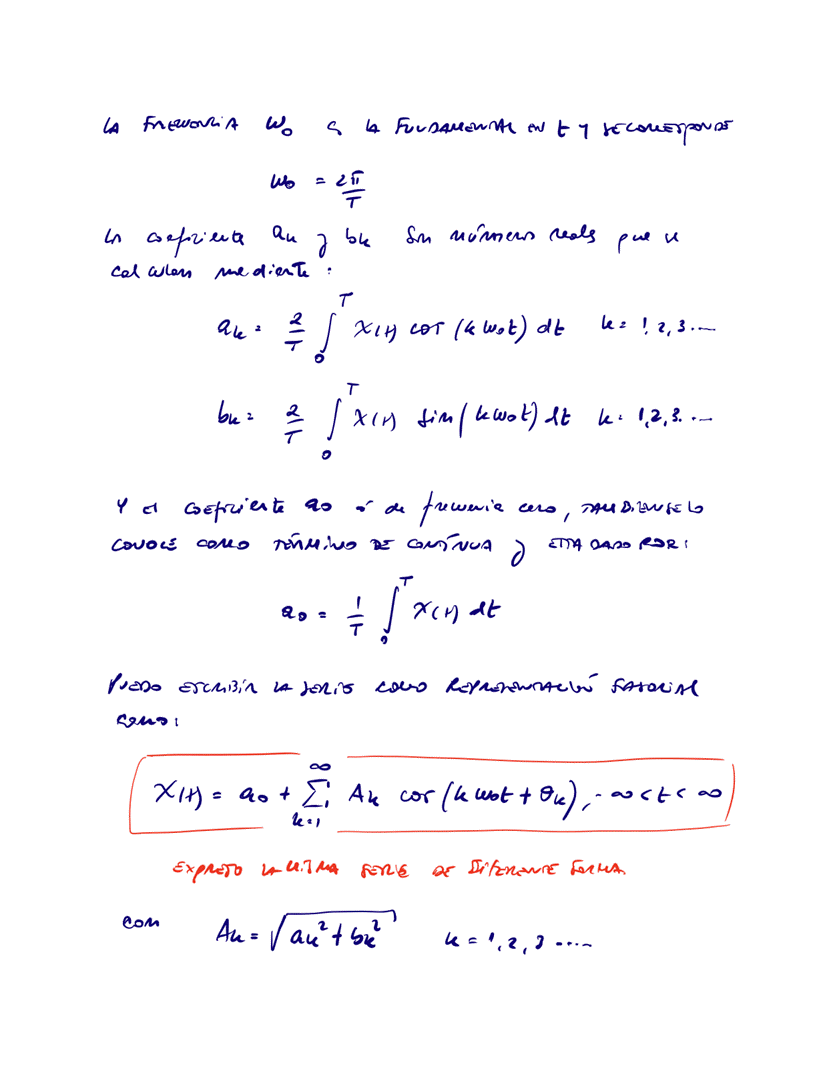 LA FRECUENCIA ω₀ es LA FUNDAMENTAL en t y se corresponde
ω₀ = 2π/T
Los coeficientes aₖ y bₖ son números reales que se
calculan mediante :
aₖ = 2/T ∫₀ᵀ x(t) cos (k ω₀t) dt k = 1, 2, 3 ....
bₖ = 2/T ∫₀ᵀ x(t) sin (k ω₀t) dt k = 1, 2, 3. ...
Y el coeficiente a₀ ó de frecuencia cero, TAMBIEN SE LO
CONOCE COMO TÉRMINO DE CONTÍNUA y ESTA DADO POR :
a₀ = 1/T ∫₀ᵀ x(t) dt
PUEDO ESCRIBIR LA SERIE COMO REPRESENTACIÓN FASORIAL
COMO :
x(t) = a₀ + ∑ₖ₌₁^∞ Aₖ cos (k ω₀t + θₖ), -∞ < t < ∞
EXPRESO LA ULTIMA SERIE DE DIFERENTE FORMA
con Aₖ = √(aₖ² + bₖ²) k = 1, 2, 3 .....